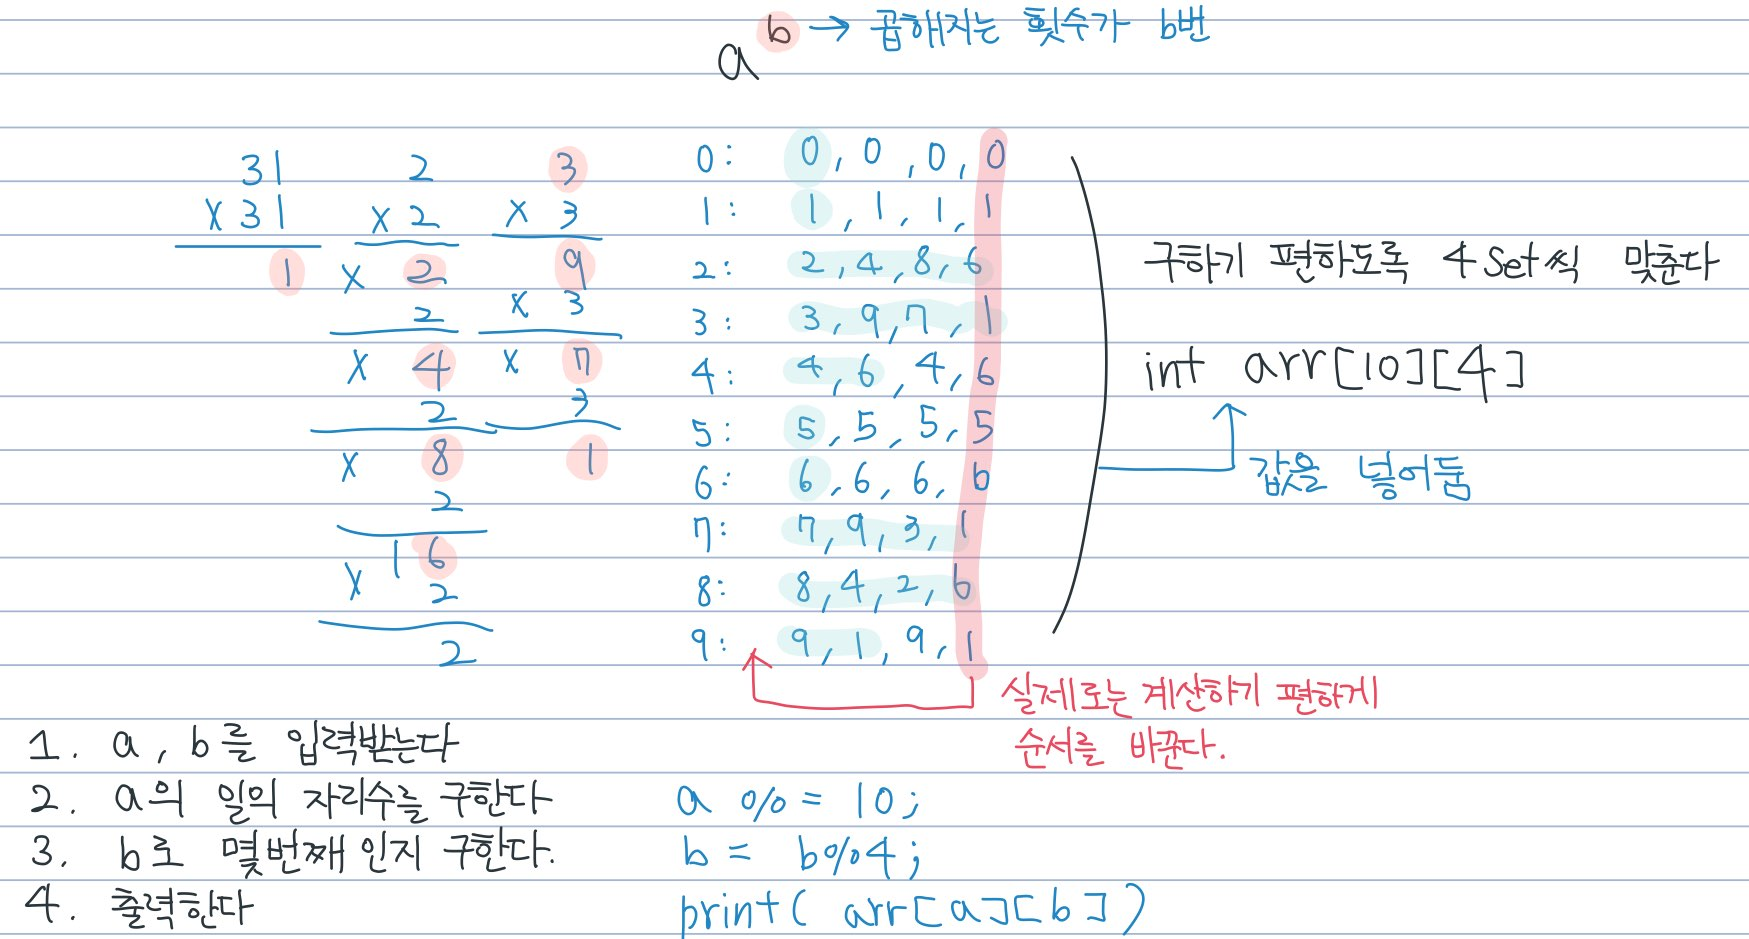 a^b → 곱해지는 횟수가 b번
31
x 31
1
2
x 2
x 2
2
x 4
2
x 8
2
x 16
2
2
3
x 3
9
x 3
x 7
3
1
0: 0, 0, 0, 0
1: 1, 1, 1, 1
2: 2, 4, 8, 6
3: 3, 9, 7, 1
4: 4, 6, 4, 6
5: 5, 5, 5, 5
6: 6, 6, 6, 6
7: 7, 9, 3, 1
8: 8, 4, 2, 6
9: 9, 1, 9, 1
구하기 편하도록 4 Set씩 맞춘다
int arr[10][4]
값을 넣어둠
실제로는 계산하기 편하게
순서를 바꾼다.
1. a, b를 입력받는다
2. a의 일의 자리수를 구한다 a %= 10;
3. b로 몇번째 인지 구한다. b = b%4;
4. 출력한다 print( arr[a][b] )